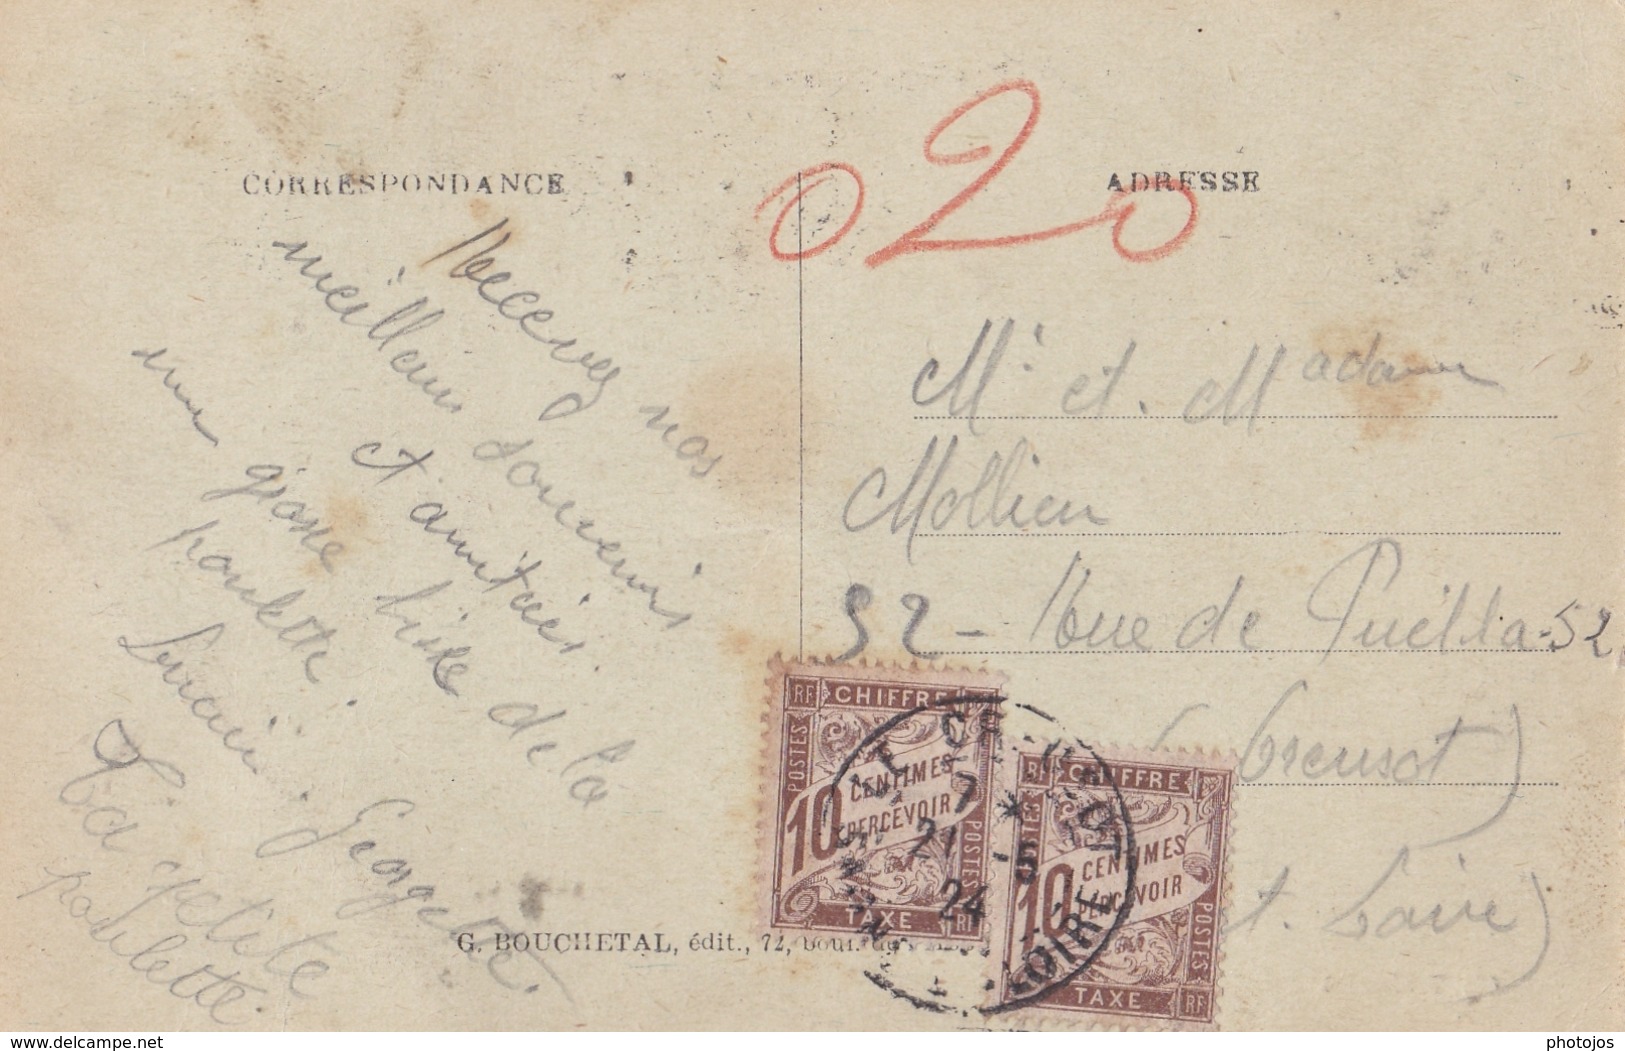 CORRESPONDANCE
ADRESSE
020
Recevez nos
meilleurs souvenirs
et amitiés.
une grosse bise de la
poulette.
Georgette.
Ta petite
poulette.
Mr et Madame
Mollien
52 - Rue de Puebla - 52
Creusot)
et. Loire)
G. BOUCHETAL, édit., 72,
RF CHIFFRE
POSTES
10 CENTIMES
A PERCEVOIR
POSTES
TAXE RF
RF CHIFFRE
POSTES
10 CENTIMES
A PERCEVOIR
POSTES
TAXE RF
LE CREUSOT
7 *
21 - 5
24
LOIRE
www.delcampe.net
photojos